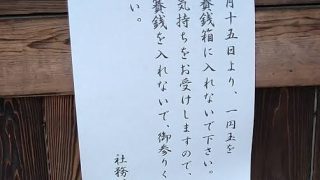 月十五日より、一円玉を
賽銭箱に入れないで下さい。
気持ちをお受けしますので、
賽銭を入れないで、御参りく
い。
社務